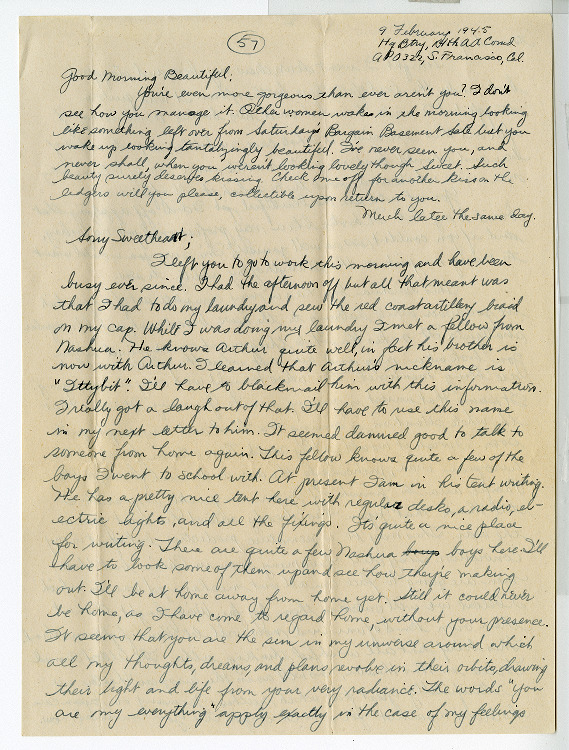 57
9 February 1945
Hq Btry, 14th AA Comd
APO 322, S. Francisco, Cal.
Good Morning Beautiful;
You're even more gorgeous than ever aren't you? I don't
see how you manage it. Other women wake in the morning looking
like something left over from Saturday's Bargain Basement Sale but you
wake up looking tantalyzingly beautiful. I've never seen you, and
never shall, when you weren't looking lovely though sweet. Such
beauty surely deserves kissing. Check me off for another kiss on the
ledgers will you please, collectible upon return to you.
Much later the same day.
Sorry Sweetheart;
I left you to go to work this morning and have been
busy ever since. I had the afternoon off but all that meant was
that I had to do my laundry and sew the red coast artillery braid
on my cap. While I was doing my laundry I met a fellow from
Nashua. He knows Arthur quite well, in fact his brother is
now with Arthur. I learned that Arthur's nickname is
"Ittybit". I'll have to blackmail him with this information.
I really got a laugh out of that. I'll have to use this name
in my next letter to him. It seemed damned good to talk to
someone from home again. This fellow knows quite a few of the
boys I went to school with. At present I am in his tent writing.
He has a pretty nice tent here with regular desks, a radio, el-
ectric lights, and all the fixings. It's quite a nice place
for writing. There are quite a few Nashua boys boys here. I'll
have to look some of them up and see how they're making
out. I'll be at home away from home yet. Still it could never
be home, as I have come to regard home, without your presence.
It seems that you are the sun in my universe around which
all my thoughts, dreams, and plans revolve in their orbits, drawing
their light and life from your very radiance. The words "you
are my everything" apply exactly in the case of my feelings